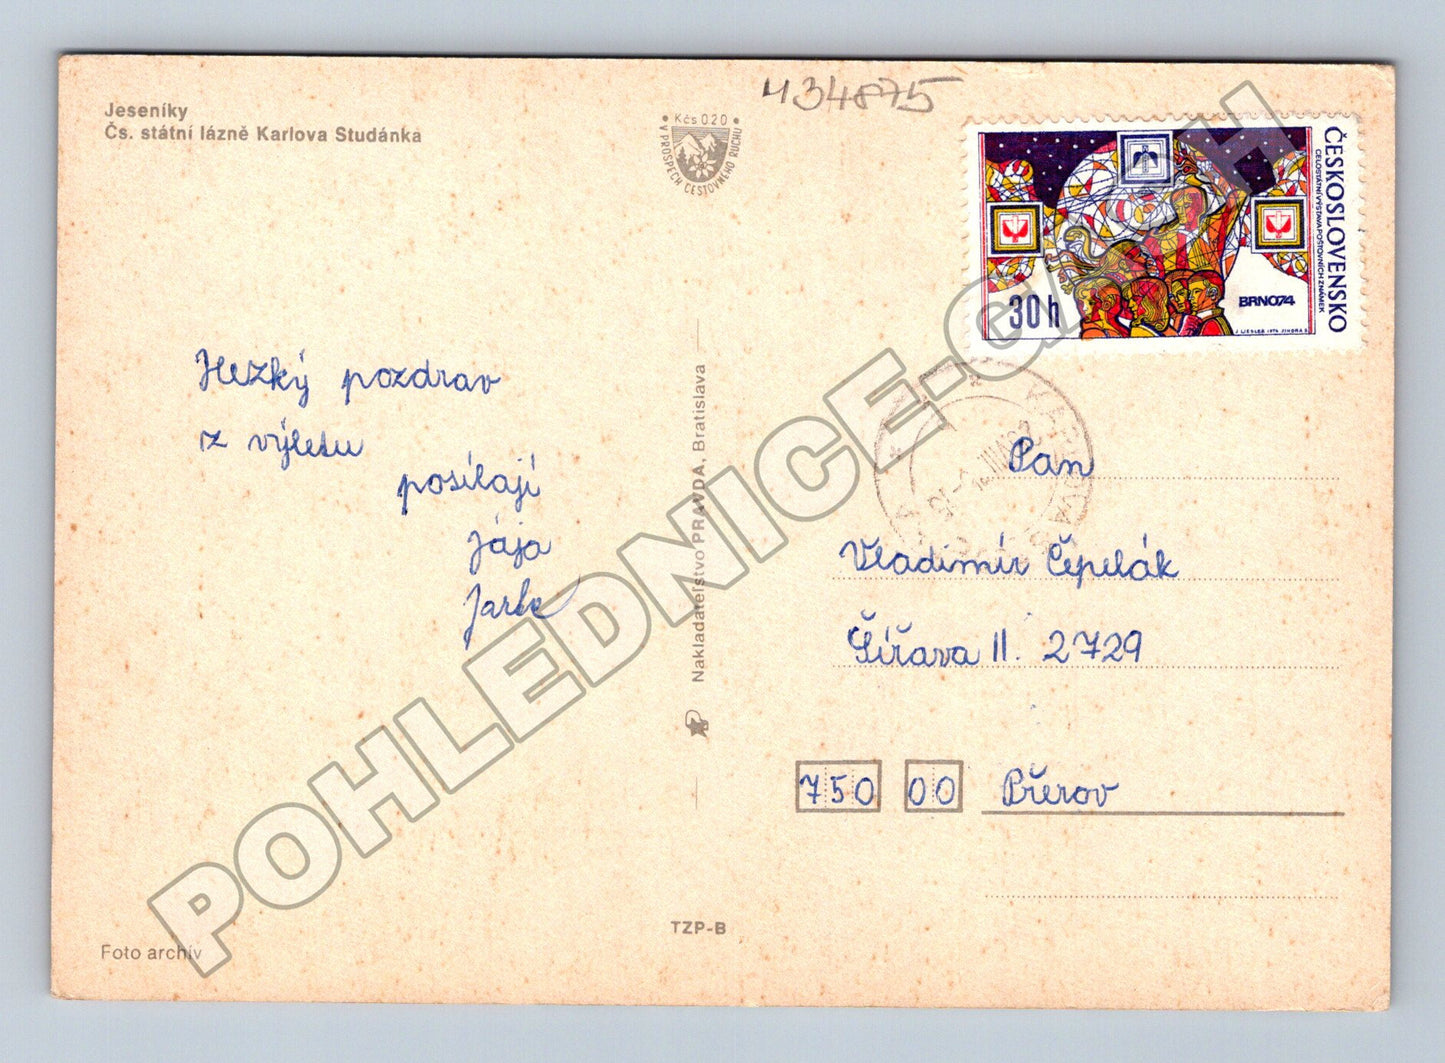 Jeseníky
Čs. státní lázně Karlova Studánka
434875
Kčs 0.20
V PROSPĚCH CESTOVNÉHO RUCHU
ČESKOSLOVENSKO
CELOSTÁTNÍ VÝSTAVA POŠTOVNÍCH ZNÁMEK
BRNO74
30 h
J. LIESLER 1974 JINDRA S.
Hezký pozdrav
z výletu
posílají
Jája
Nakladateľstvo PRAVDA, Bratislava
Pan
Vladimír Čepelák
Šířava II. 2729
750 00 Přerov
TZP-B
Foto archív
POHLEDNICE.CZECH